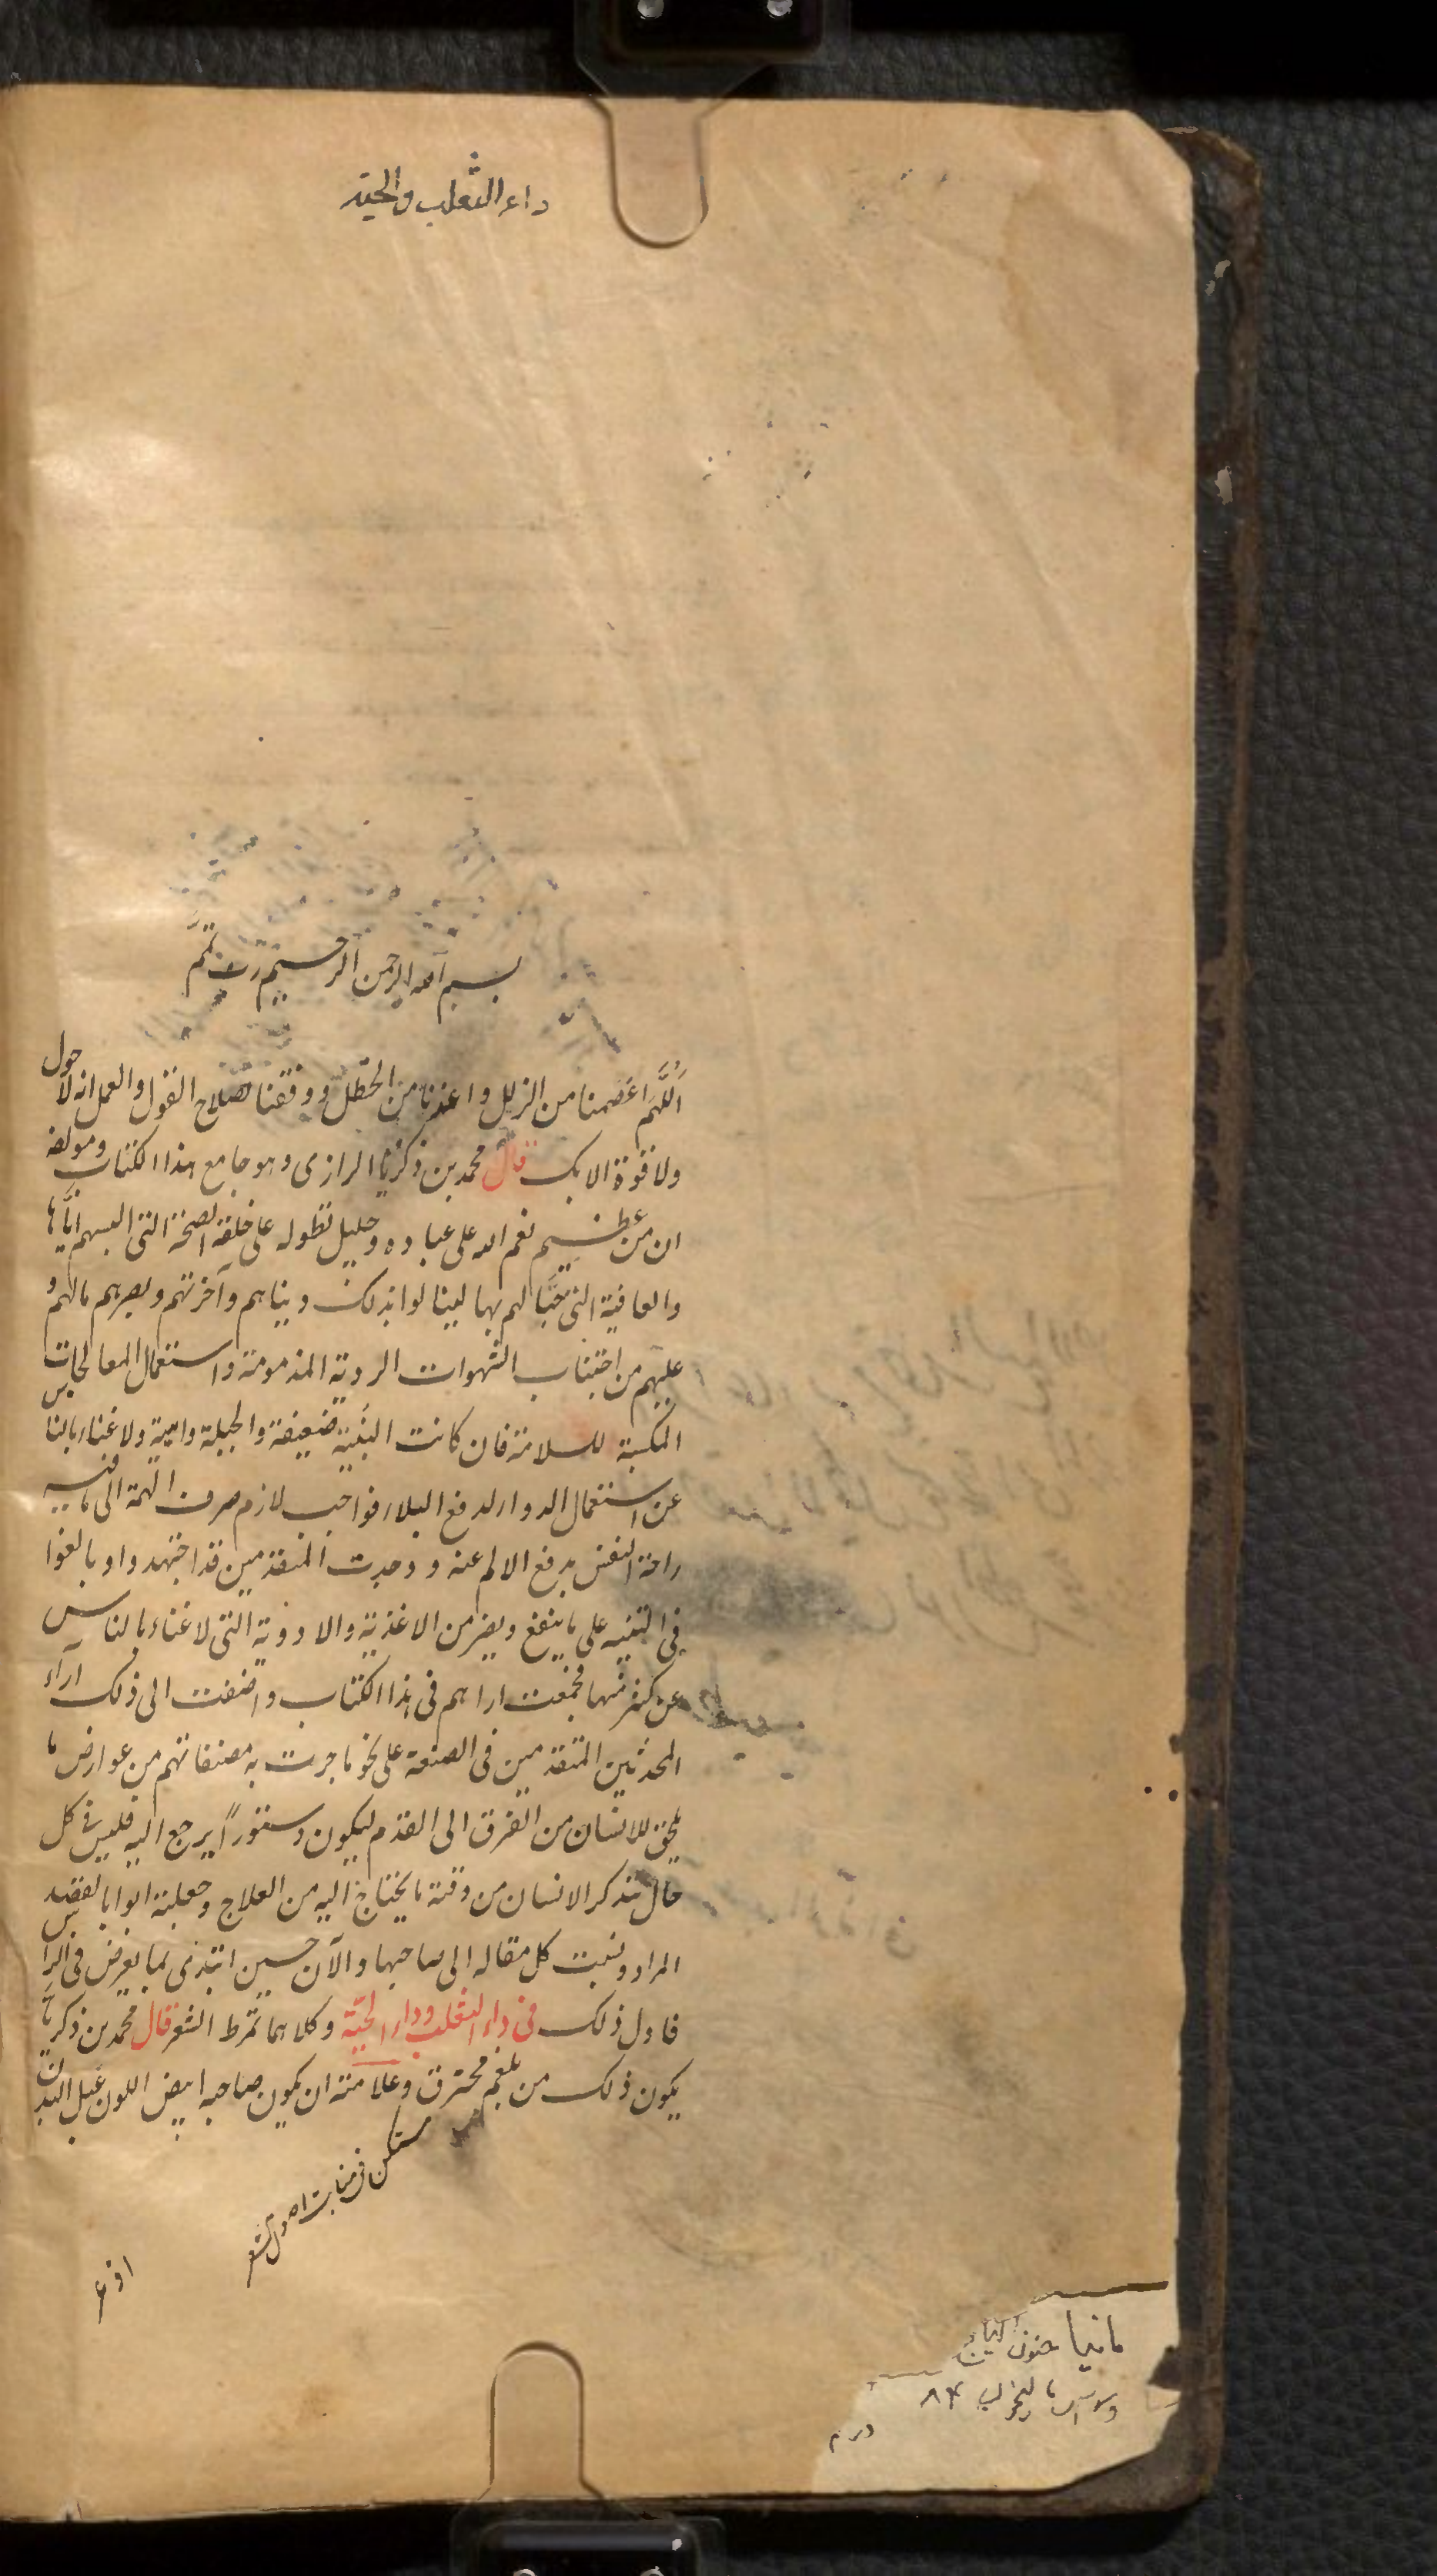 داء الثعلب والحية
بسم الله الرحمن الرحيم رب تمم
اللهم اعصمنا من الزلل واعذنا من الخطل ووفقنا لصلاح القول والعمل انه لا حول
ولا قوة الا بك قال محمد بن ذكريا الرازى وهو جامع هذا الكتاب ومولفه
ان من عظيم نعم الله على عباده وجليل تطوله على خلقه الصحة التى البسهم اياها
والعافية التى حبا لهم بها لينالوا بذلك دنياهم وآخرتهم وبصرهم مالهم و
عليهم من اجتناب الشهوات الردية المذمومة واستعمال المعالجات
المكسبة للسلامة فان كانت البنية ضعيفة والجبلة واهية ولا غناء بالناس
عن استعمال الدواء لدفع البلاء فواجب لازم صرف الهمة الى ما فيه
راحة النفس بدفع الالم عنه ووجدت المتقدمين قد اجتهدوا وبالغوا
فى التنبيه على ما ينفع ويضر من الاغذية والادوية التى لا غناء بالناس
عن كثر منها فجمعت اراهم فى هذا الكتاب واضفت الى ذلك آراء
المحدثين المتقدمين فى الصنعة على نحو ما جرت به مصنفاتهم من عوارض ما
يلحق للانسان من الفرق الى القدم ليكون دستوراً يرجع اليه فليس فى كل
حال يتذكر الانسان من وقته ما يحتاج اليه من العلاج وجعلته ابوابا لقصد
المراد ونسبت كل مقاله الى صاحبها والآن حين ابتدى بما يعرض فى الراس
فاول ذلك فى داء الثعلب وداء الحية وكلاهما تمرط الشعر قال محمد بن ذكريا
يكون ذلك من بلغم محترق وعلامته ان يكون صاحبه ابيض اللون عبل البدن
ستكن فى منابت اصول الشعر
مانيا جنون
درم